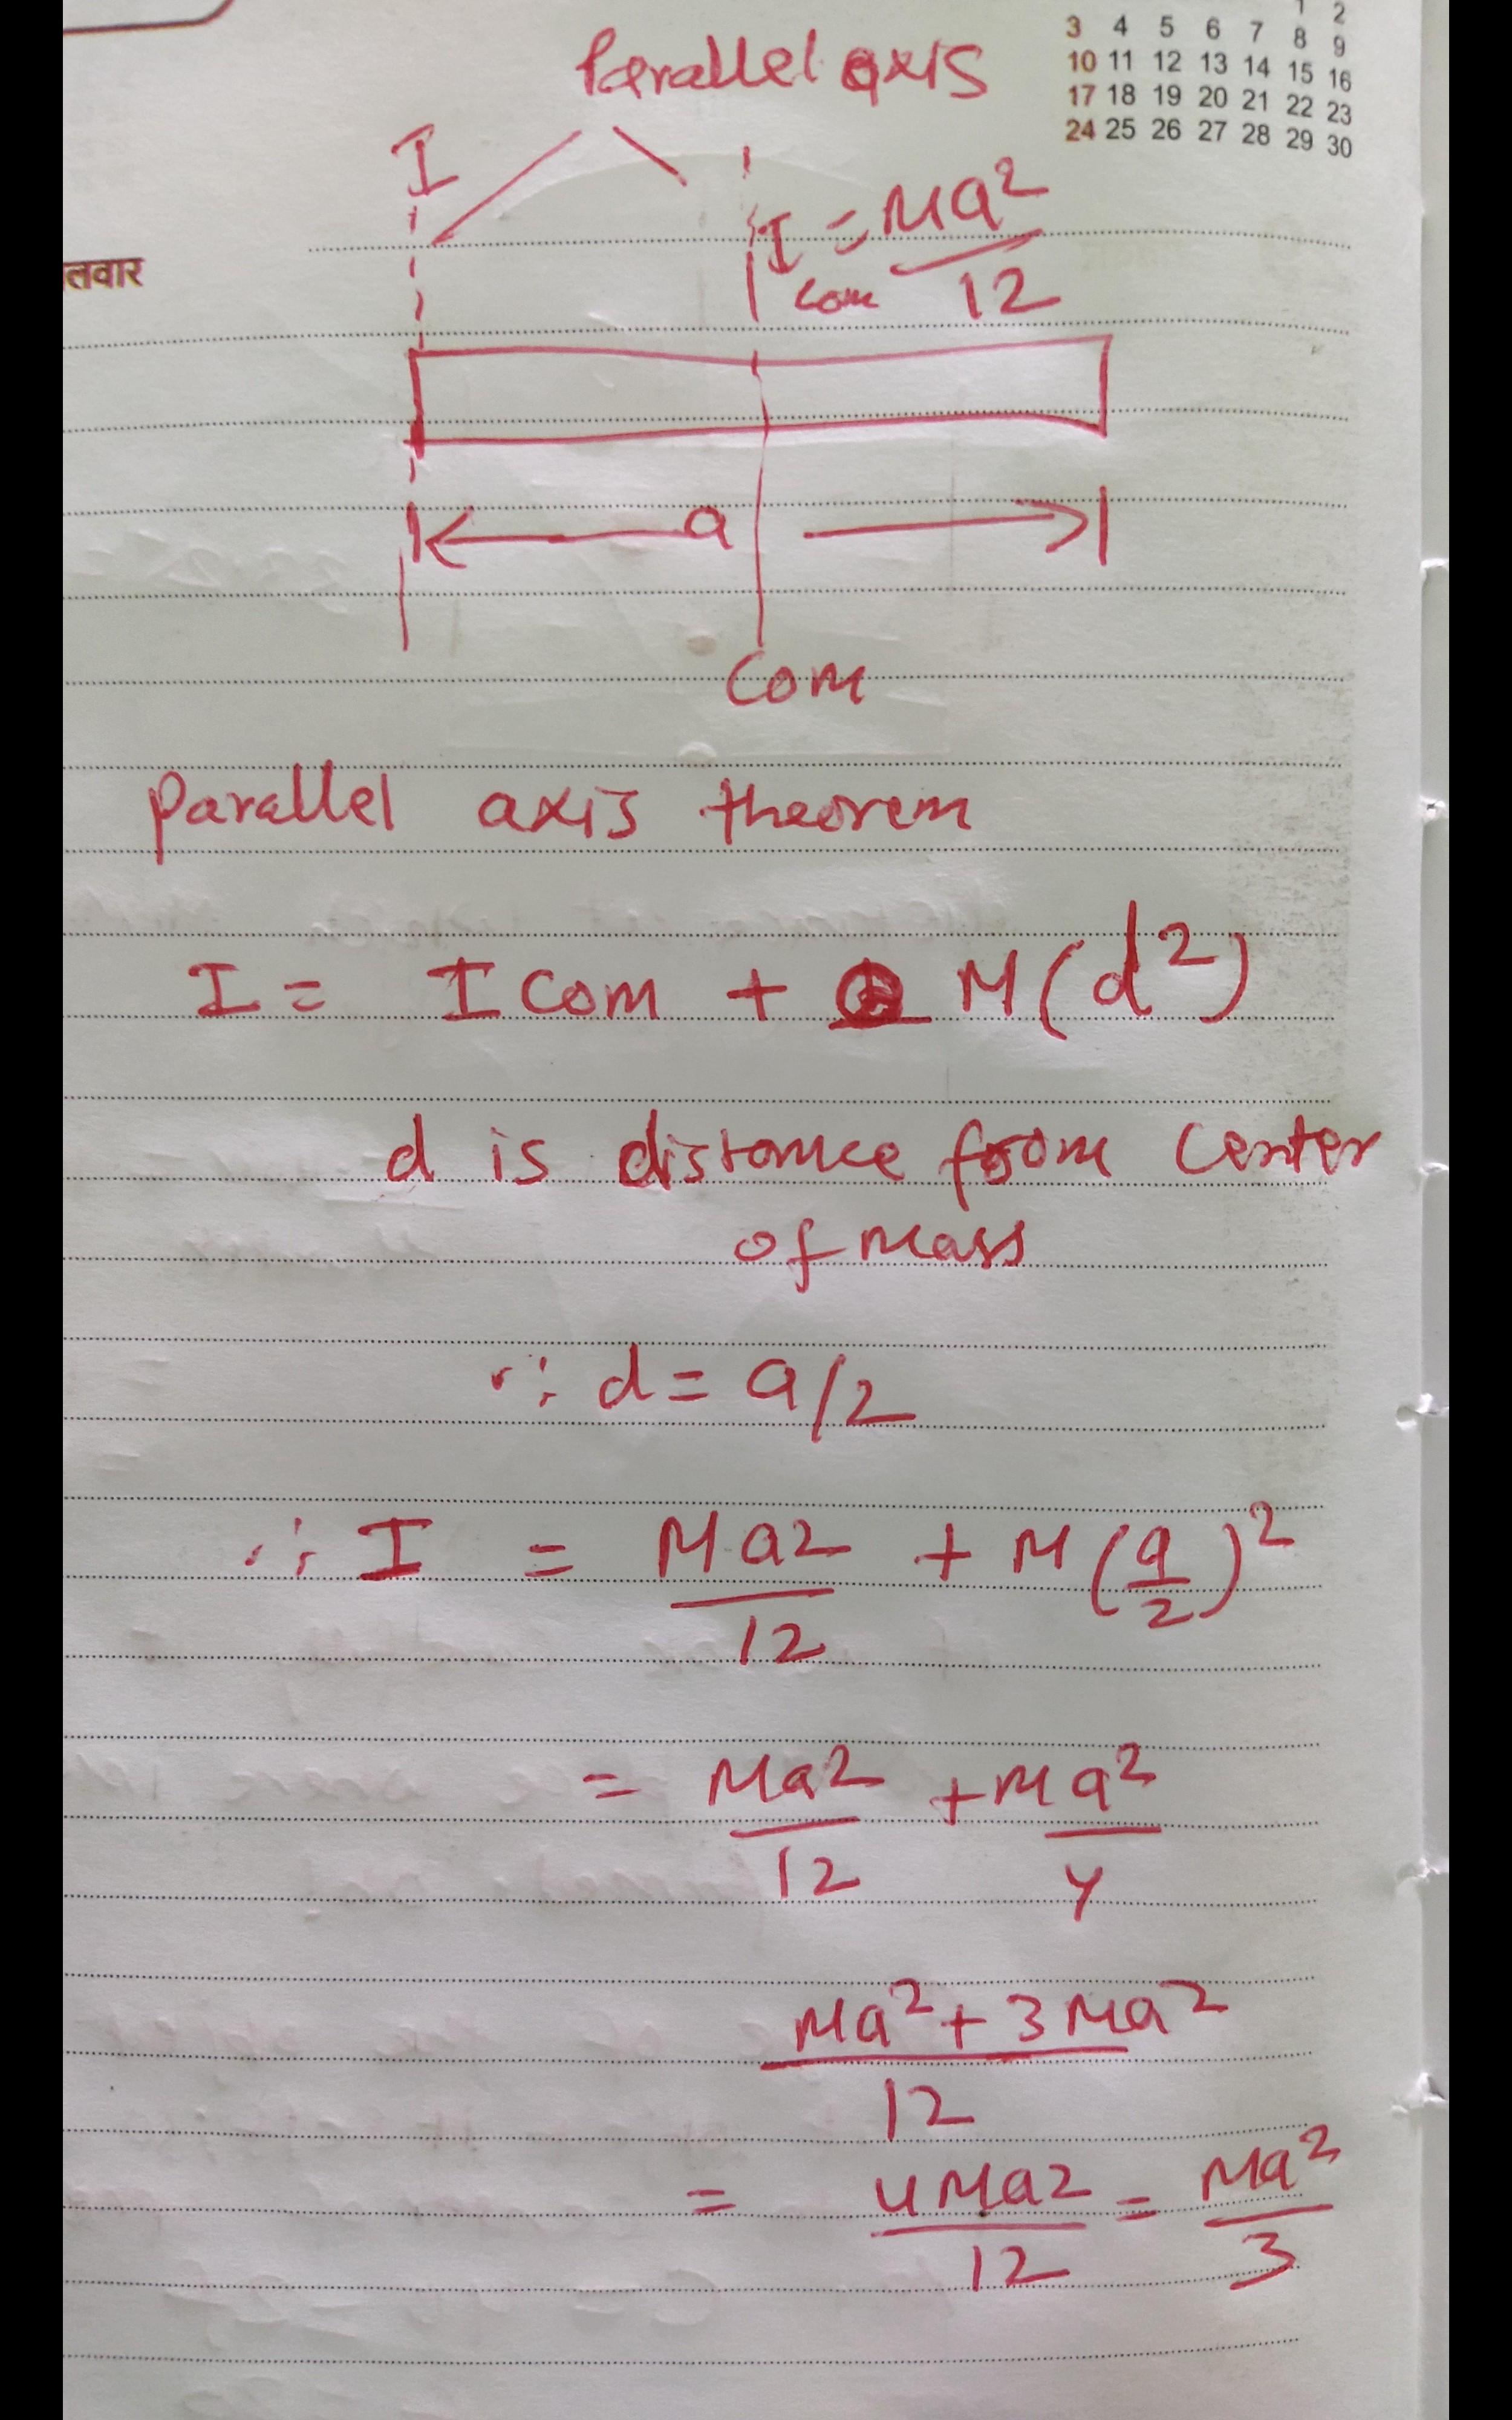 1 2
3 4 5 6 7 8 9
10 11 12 13 14 15 16
17 18 19 20 21 22 23
24 25 26 27 28 29 30
Parallel axis
I
I com = Ma²/12
तवार
a
Com
Parallel axis theorem
I = I com + M(d²)
d is distance from center
of mass
∵ d = a/2
∴ I = Ma2/12 + M(a/2)²
= Ma2/12 + Ma²/4
Ma² + 3Ma²/12
= 4Ma2/12 = Ma²/3